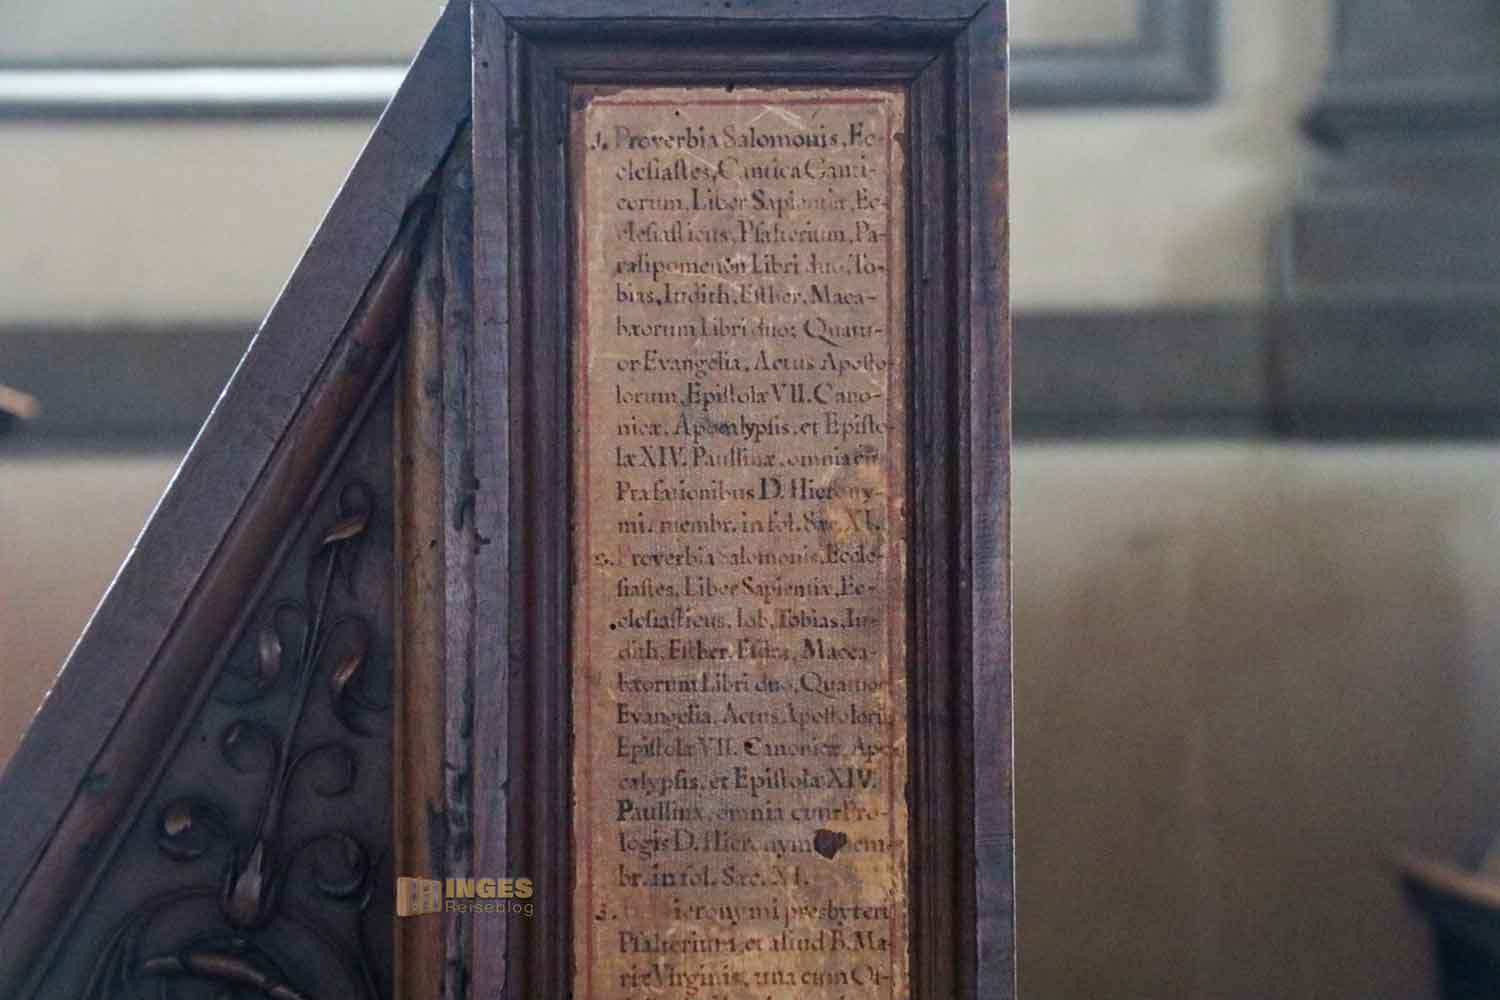 1. Proverbia Salomonis, Ec-
clesiastes, Cantica Canti-
corum, Liber Sapientiæ, Ec-
clesiasticus, Psalterium, Pa-
ralipomenon Libri duo, To-
bias, Iudith, Esther, Maca-
bæorum Libri duo; Quatu-
or Evangelia, Actus Aposto-
lorum, Epistolæ VII. Cano-
nicæ, Apocalypsis, et Episto-
læ XIV. Paullinæ, omnia cū
Præfationibus D. Hierony-
mi. membr. in fol. Sæc. XI.
2. Proverbia Salomonis, Eccle-
siastes, Liber Sapientiæ, Ec-
clesiasticus, Iob, Tobias, Iu-
dith, Esther, Esdras, Macca-
bæorum Libri duo, Quatuor
Evangelia, Actus Apostolorū,
Epistolæ VII. Canonicæ, Apo-
calypsis, et Epistolæ XIV.
Paullinæ, omnia cum Pro-
logis D. Hieronymi mem-
br. in fol. Sæc. XI.
3. Hieronymi presbyteri
Psalterium, et aliud B. Ma-
riæ Virginis, una cum Of-
INGES
Reiseblog